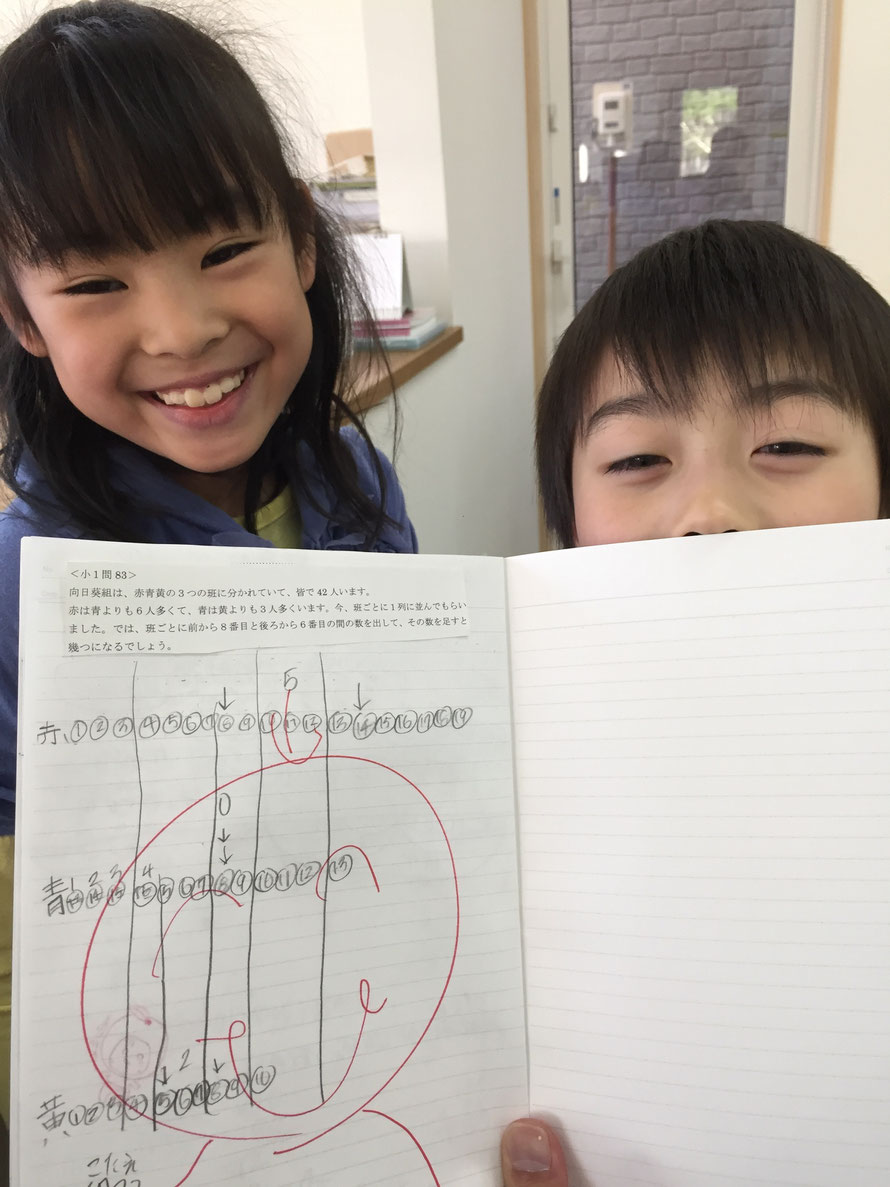 <小1問83>
向日葵組は、赤青黄の3つの班に分かれていて、皆で42人います。
赤は青よりも6人多くて、青は黄よりも3人多くいます。今、班ごとに1列に並んでもらい
ました。では、班ごとに前から8番目と後ろから6番目の間の数を出して、その数を足すと
幾つになるでしょう。
5
①②③④⑤⑥⑦⑧⑨⑩⑪⑫⑬⑭⑮⑯⑰⑱⑲
0
1 2 3 4
青 ⑤⑥⑦⑧⑨⑩⑪⑫⑬
2
黄 ①②③④⑤⑥⑦⑧⑨⑩
こたえ